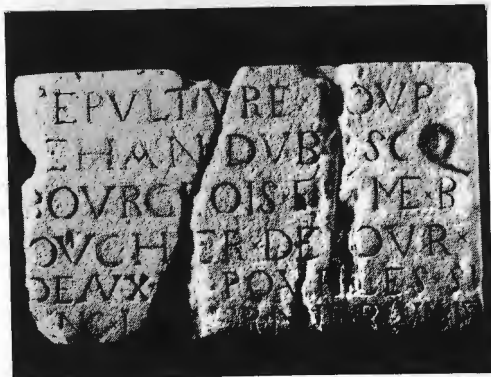 EPVLTVRE DVP
EHAN DVB SCQ
BOVRGOIS E ME B
OVCHER·DE BOVR
DEAVX POV LES S